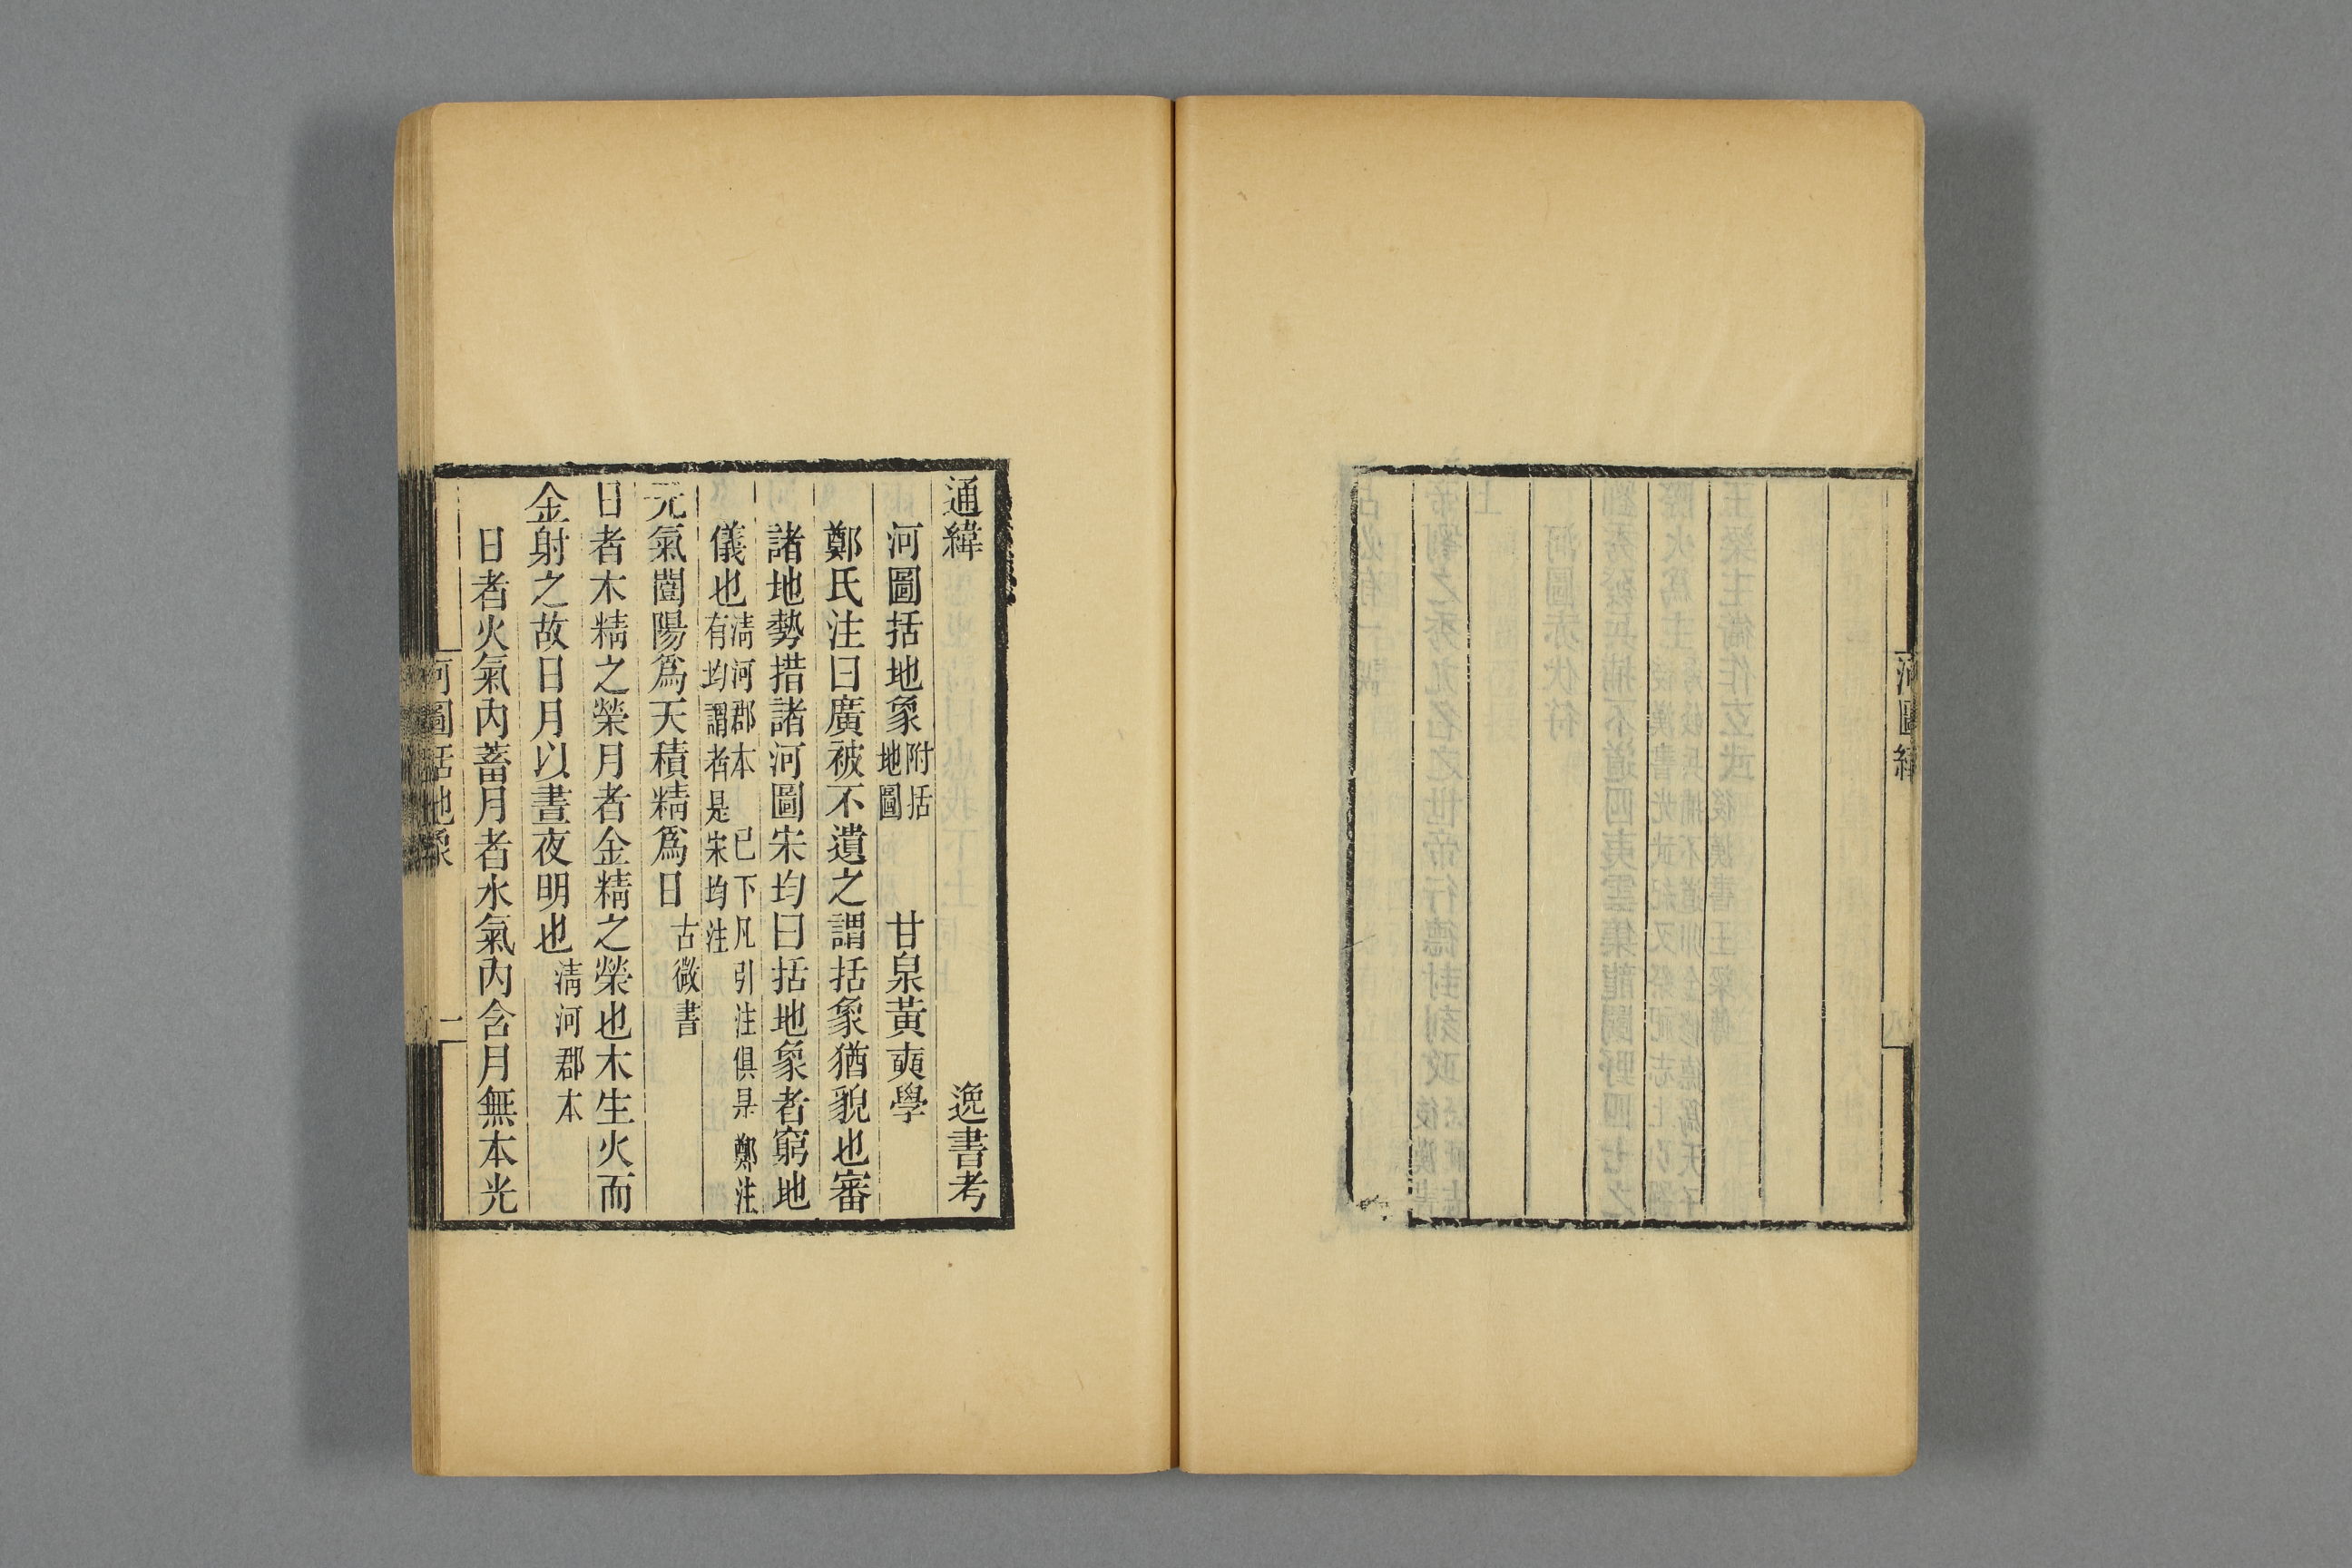 河圖緯
通緯 逸書考
河圖括地象附括地圖 甘泉黃奭學
鄭氏注曰廣被不遺之謂括象猶貌也審
諸地勢措諸河圖宋均曰括地象者窮地
儀也淸河郡本 已下凡引注俱是鄭注有均謂者是宋均注
元氣闓陽爲天積精爲日古微書
日者木精之榮月者金精之榮也木生火而
金射之故日月以晝夜明也淸河郡本
日者火氣內蓄月者水氣內含月無本光
河圖括地象 一